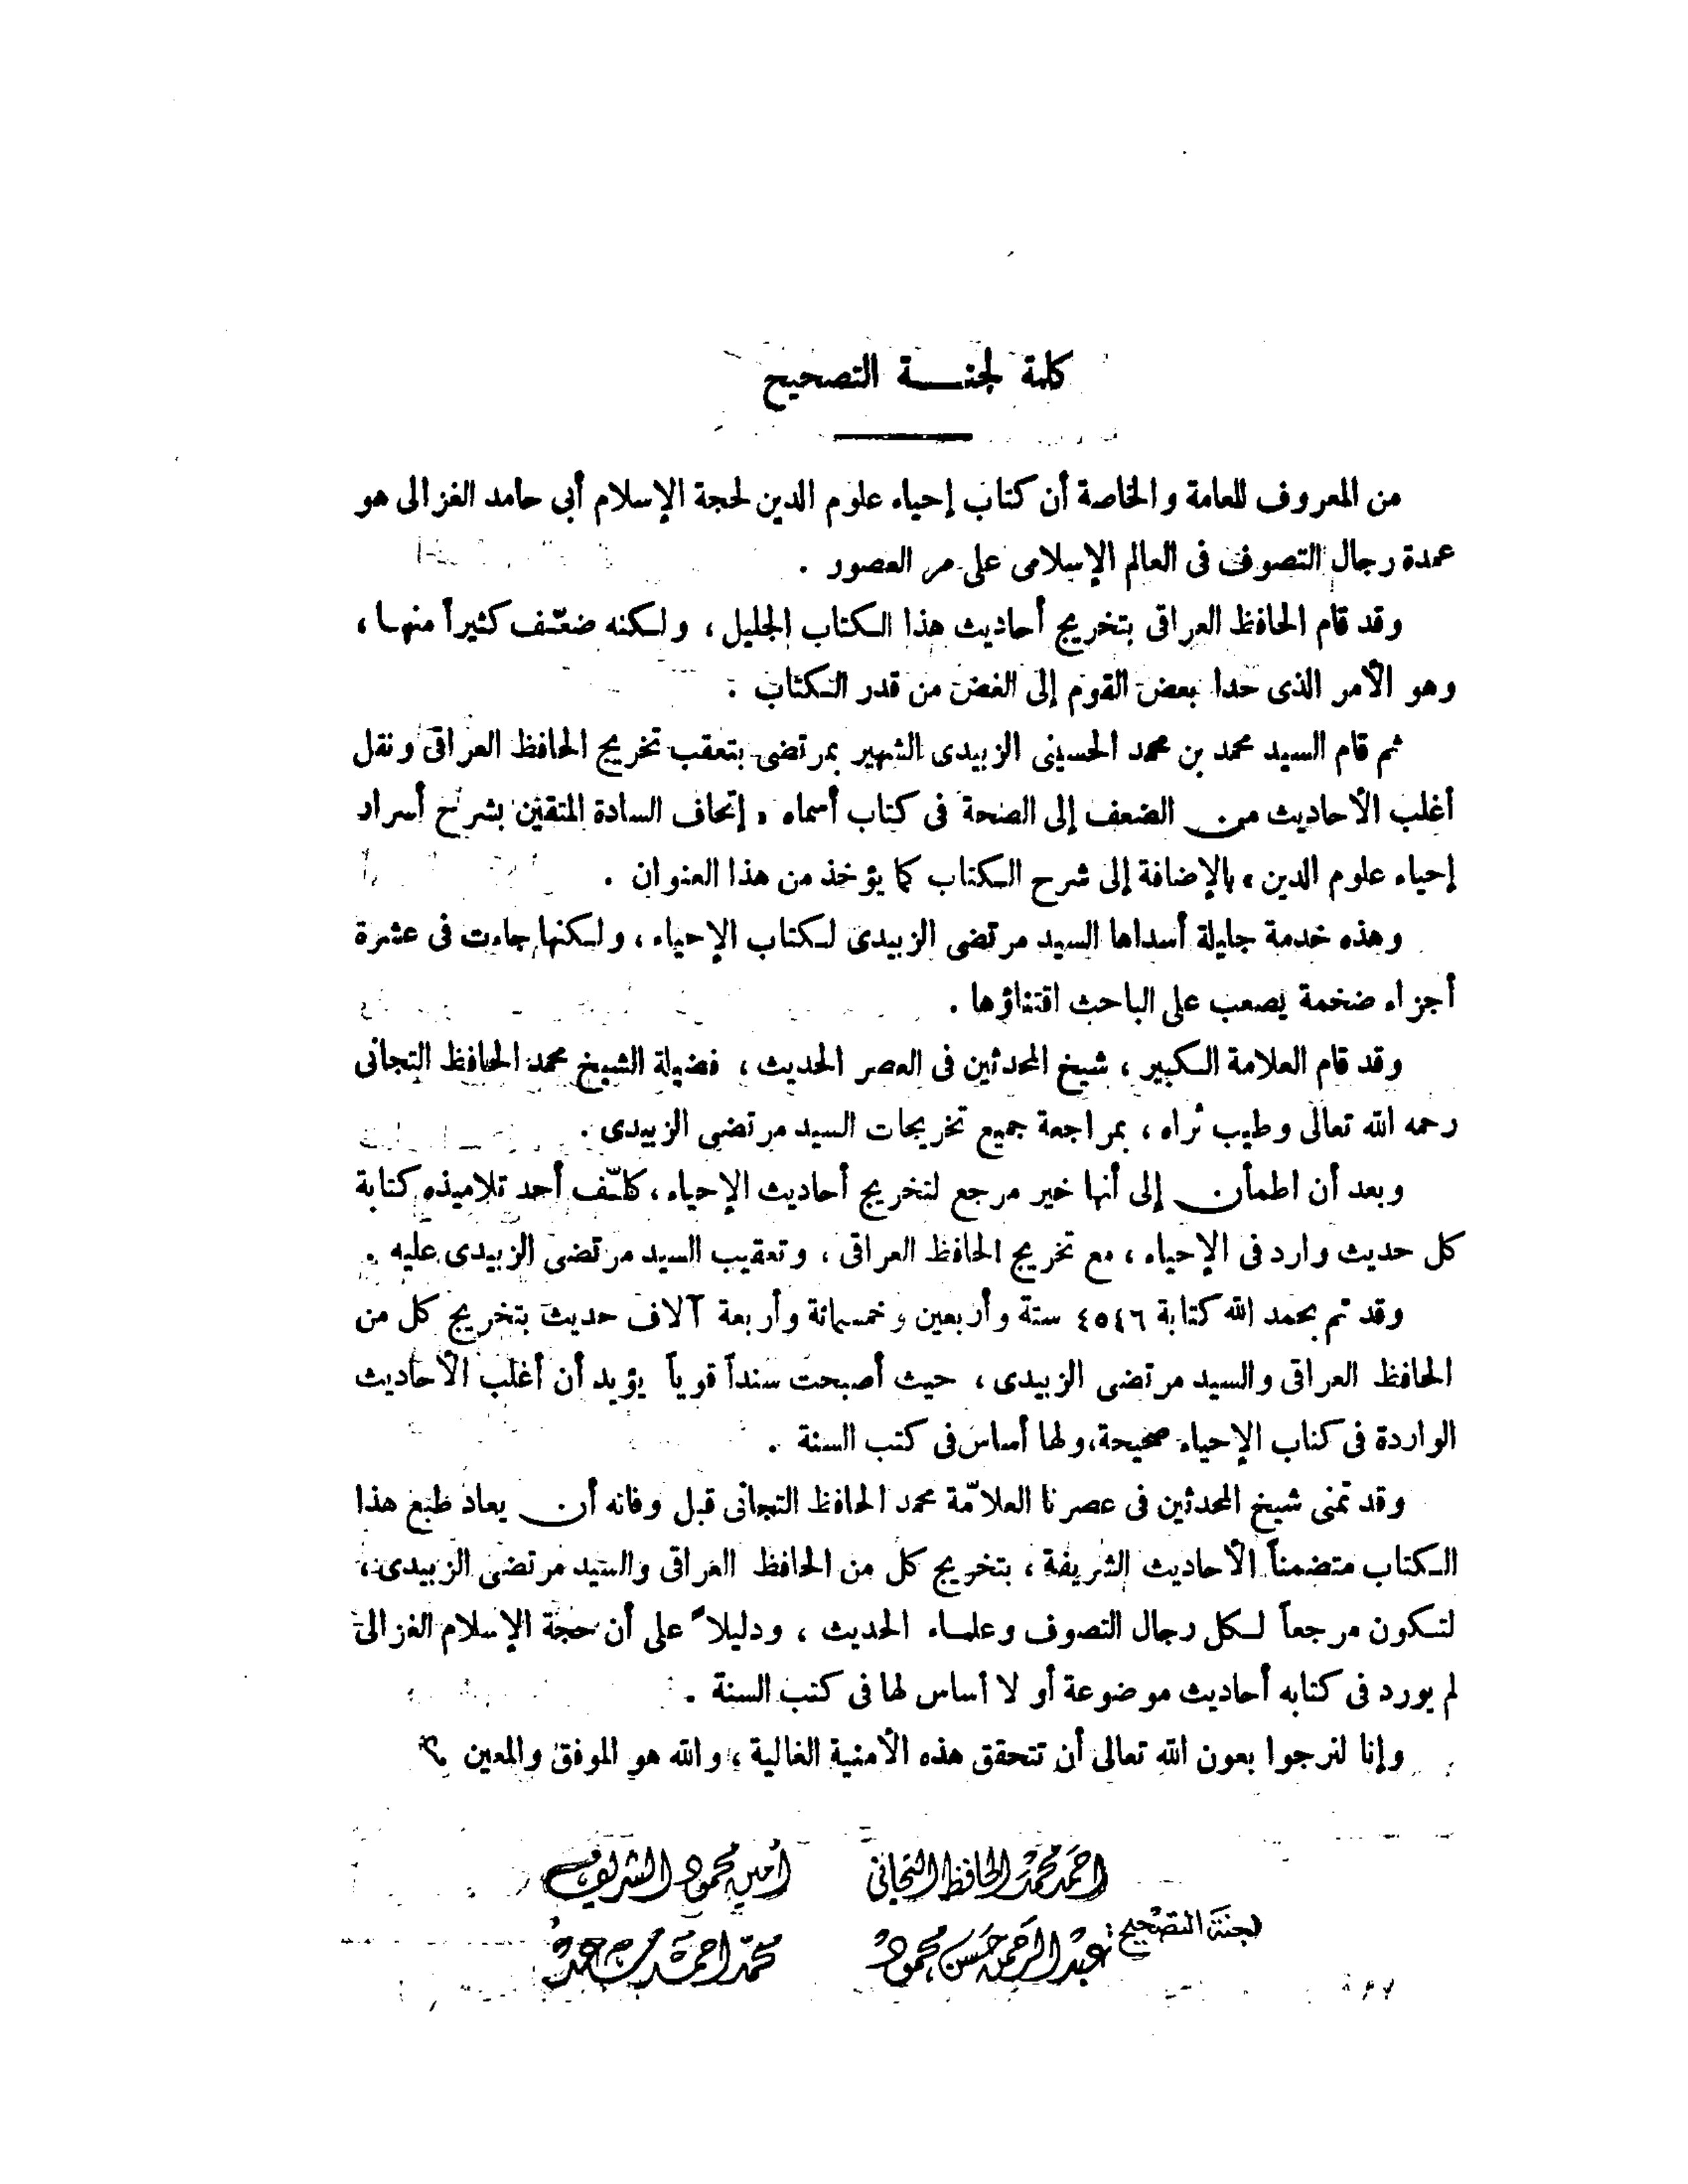 كلمة لجنـــة التصحيح
من المعروف للعامة والخاصة أن كتاب إحياء علوم الدين لحجة الإسلام أبى حامد الغزالى هو
عمدة رجال التصوف فى العالم الإسلامى على مر العصور .
وقد قام الحافظ العراقى بتخريج أحاديث هذا الكتاب الجليل ، ولكنه ضعّف كثيراً منهـا ،
وهو الأمر الذى حدا بعض القوم إلى الغض من قدر الكتاب .
ثم قام السيد محمد بن محمد الحسينى الزبيدى الشهير بمرتضى بتعقب تخريج الحافظ العراقى ونقل
أغلب الأحاديث من الضعف إلى الصحة فى كتاب أسماه « إتحاف السادة المتقين بشرح أسرار
إحياء علوم الدين » بالإضافة إلى شرح الكتاب كما يؤخذ من هذا العنوان .
وهذه خدمة جليلة أسداها السيد مرتضى الزبيدى لكتاب الإحياء ، ولكنها جاءت فى عشرة
أجزاء ضخمة يصعب على الباحث اقتناؤها .
وقد قام العلامة الكبير ، شيخ المحدثين فى العصر الحديث ، فضيلة الشيخ محمد الحافظ التجانى
رحمه الله تعالى وطيب ثراه ، بمراجعة جميع تخريجات السيد مرتضى الزبيدى .
وبعد أن اطمأن إلى أنها خير مرجع لتخريج أحاديث الإحياء ، كلّف أحد تلاميذه كتابة
كل حديث وارد فى الإحياء ، مع تخريج الحافظ العراقى ، وتعقيب السيد مرتضى الزبيدى عليه .
وقد تم بحمد الله كتابة ٤٥٤٦ ستة وأربعين وخمسمائة وأربعة آلاف حديث بتخريج كل من
الحافظ العراقى والسيد مرتضى الزبيدى ، حيث أصبحت سنداً قوياً يؤيد أن أغلب الأحاديث
الواردة فى كتاب الإحياء صحيحة، ولها أساس فى كتب السنة .
وقد تمنى شيخ المحدثين فى عصرنا العلاّمة محمد الحافظ التجانى قبل وفاته أن يعاد طبع هذا
الكتاب متضمناً الأحاديث الشريفة ، بتخريج كل من الحافظ العراقى والسيد مرتضى الزبيدى ،
لتكون مرجعاً لكل رجال التصوف وعلمـاء الحديث ، ودليلاً على أن حجة الإسلام الغزالى
لم يورد فى كتابه أحاديث موضوعة أو لا أساس لها فى كتب السنة .
وإنا لنرجوا بعون الله تعالى أن تتحقق هذه الأمنية الغالية ، والله هو الموفق والمعين
أحمد محمد الحافظ التجانى أمين محمود الشريف
لجنة التصحيح :
عبد الرحمن حسن محمود محمد أحمد سعد